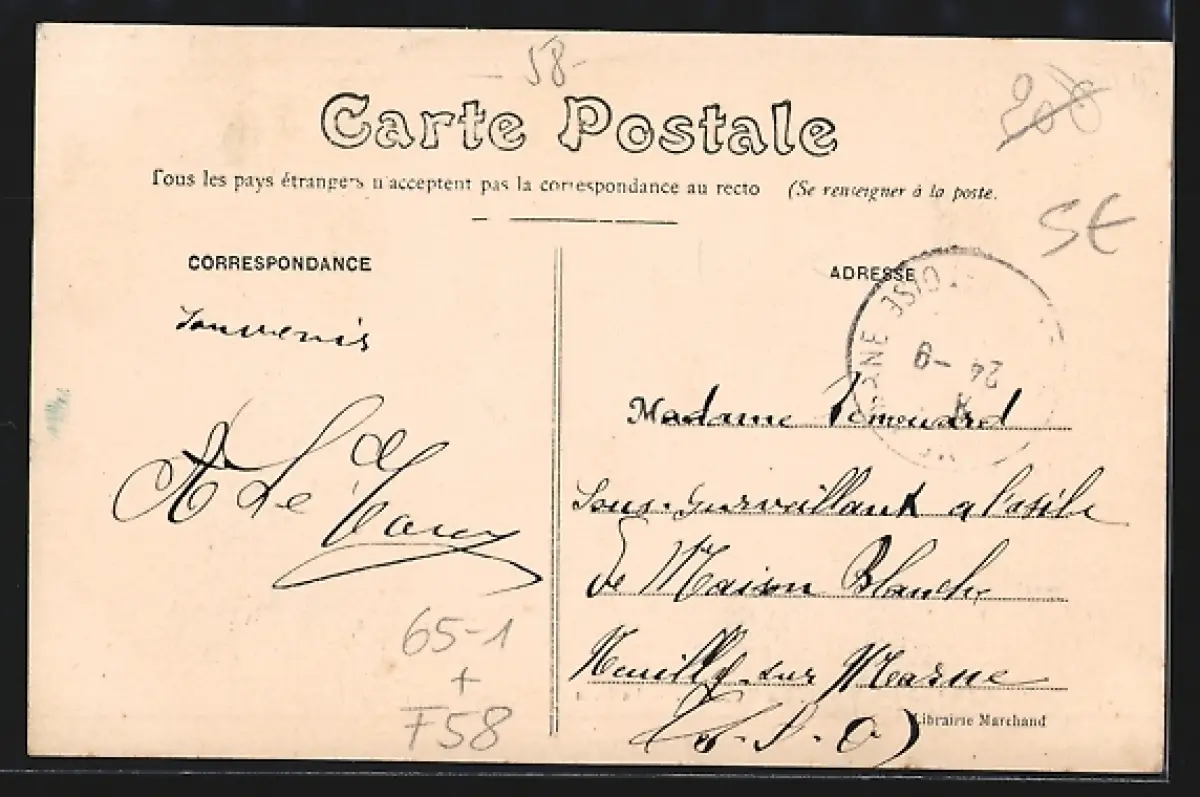 -58-
200
Carte Postale
Tous les pays étrangers n'acceptent pas la correspondance au recto (Se renseigner à la poste.
5€
CORRESPONDANCE
ADRESSE
Souvenir
OISE
24 - 9
Madame
A Le
Sous-Surveillant a l'asile
de Maison Blanche
Neuilly-sur Marne
(S.-O)
65-1
+
F58
Librairie Marchand